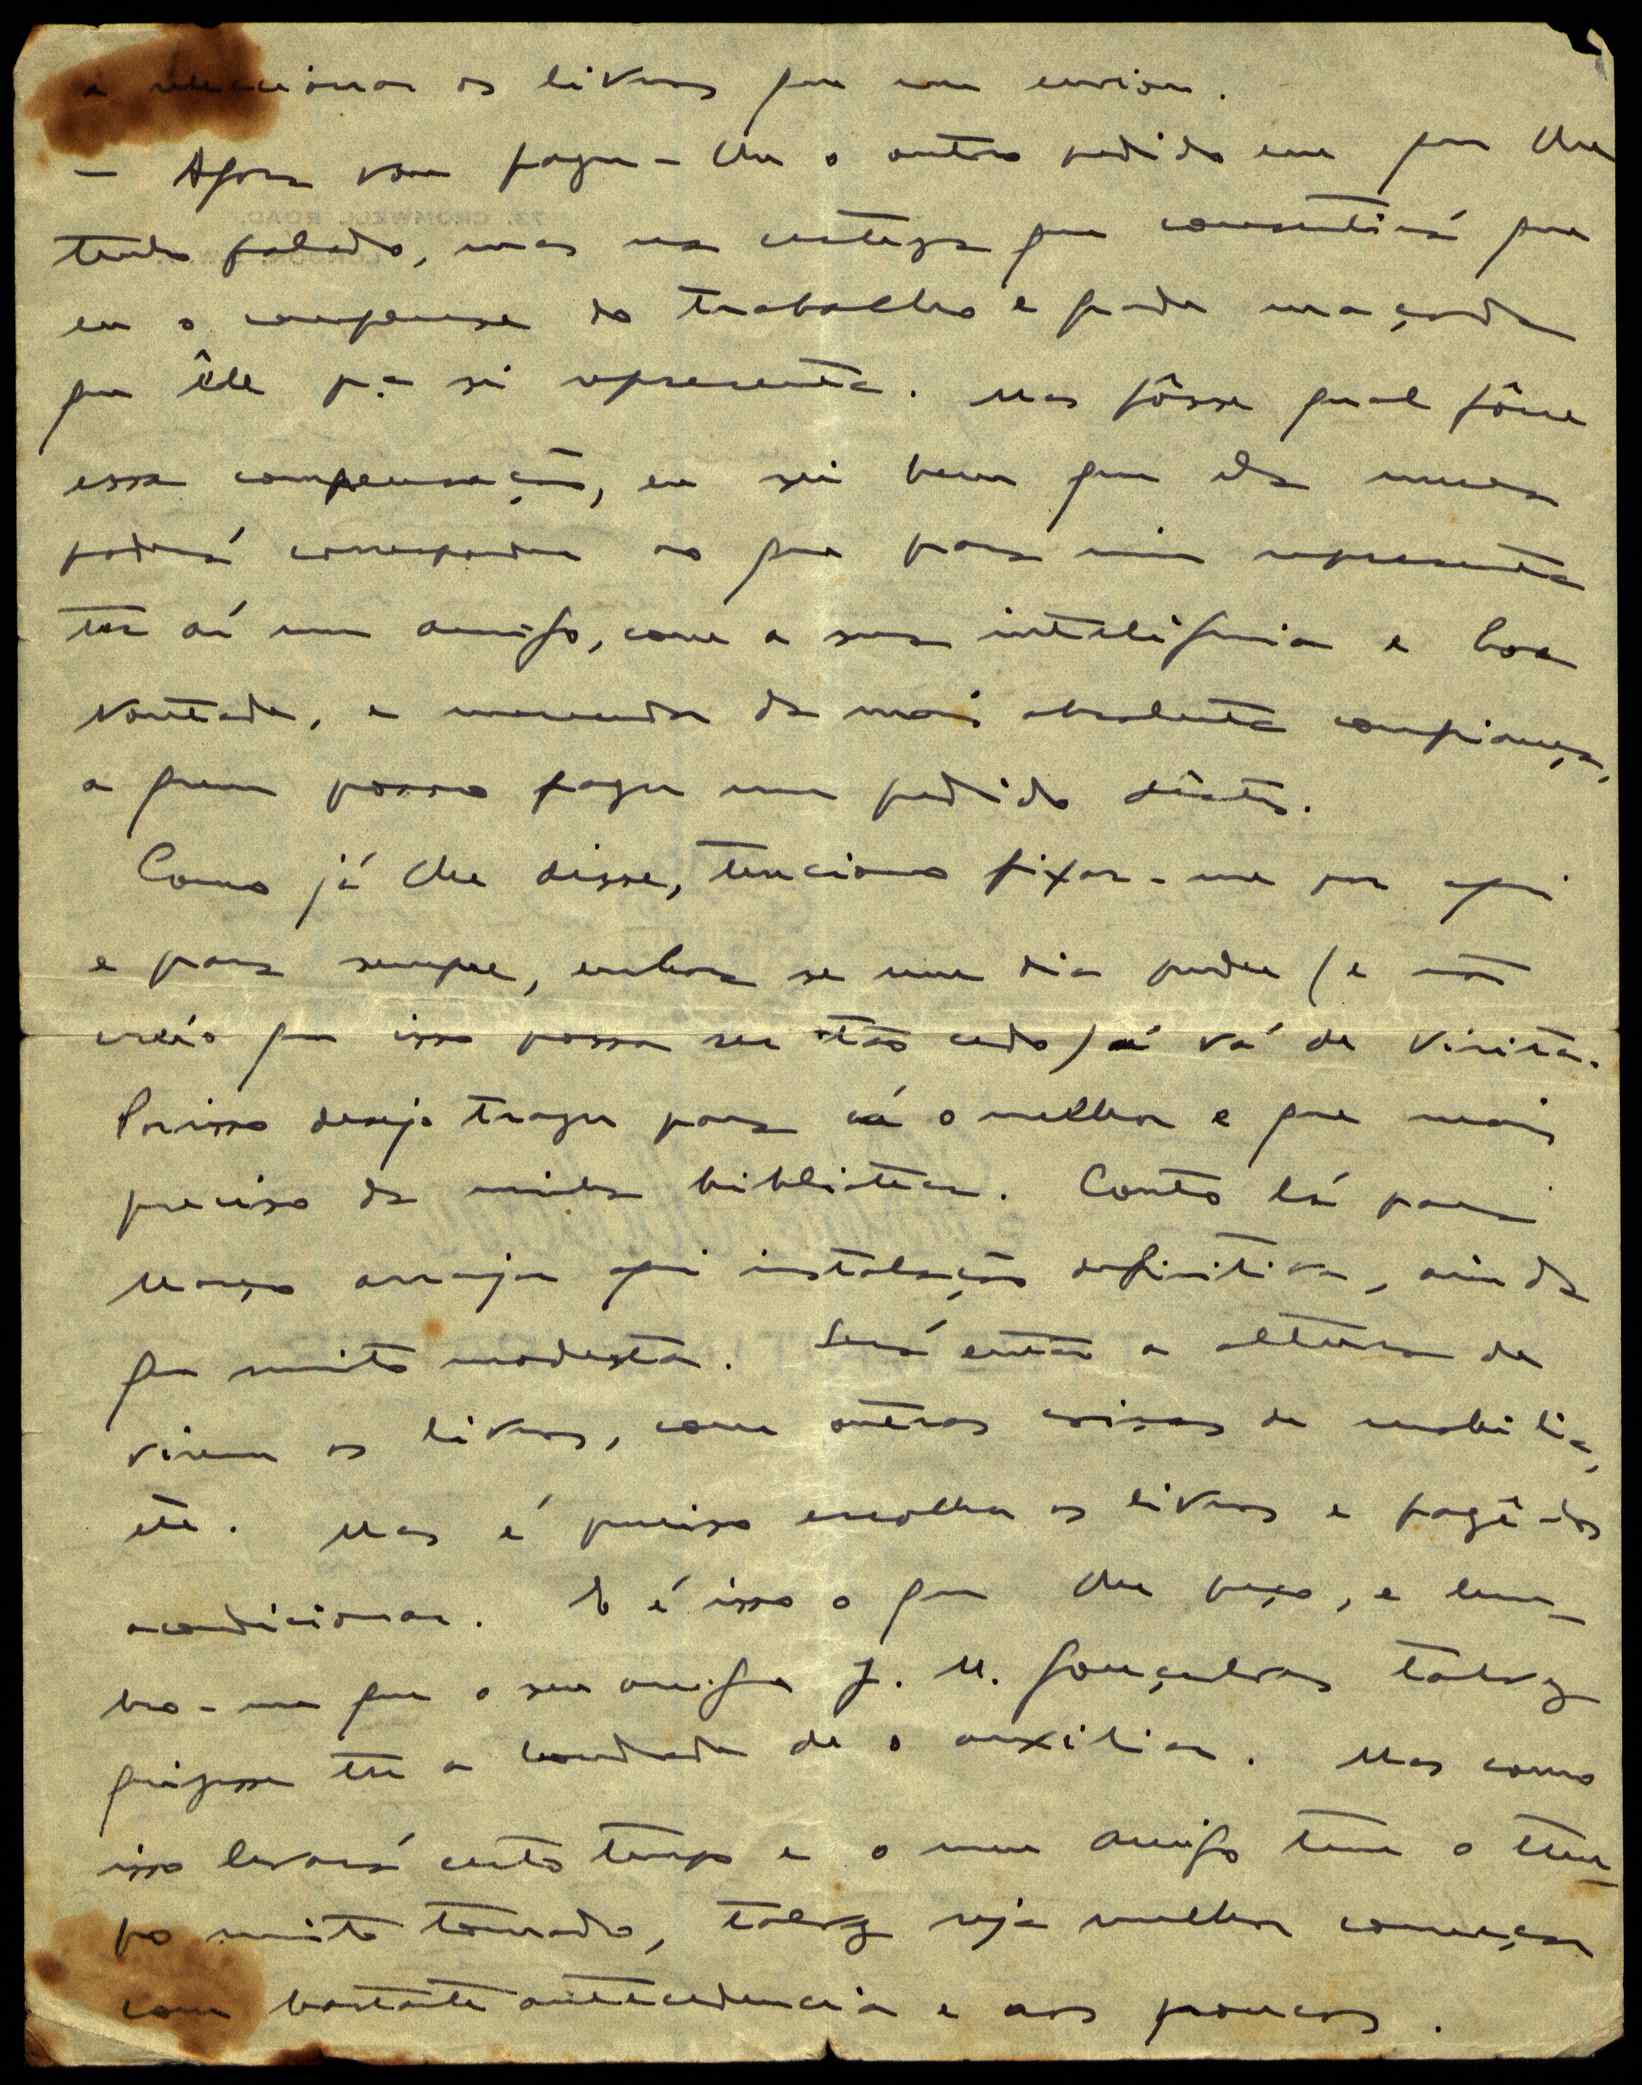 a seleccionar os livros que me enviou.
— Agora vou fazer-lhe o outro pedido em que lhe
tenho falado, mas na certeza que consentirá que
eu o compense do trabalho e grande maçada
que êle p.a si representa. Mas fôsse qual fôsse
essa compensação, eu sei bem que ela nunca
poderá corresponder ao que para mim representa
ter aí um amigo, com a sua inteligência e boa
vontade, e merecedor da mais absoluta confiança,
a quem posso fazer um pedido dêstes.
Como já lhe disse, tenciono fixar-me por aqui
e para sempre, embora se um dia puder (e não
creio que isso possa ser tão cedo) aí vá de visita.
Porisso desejo trazer para cá o melhor e que mais
preciso da minha biblioteca. Conto lá para
Março arranjar aqui instalação definitiva, ainda
que muito modesta. Será então a altura de
virem os livros, com outras coisas de mobília,
etc. Mas é preciso escolher os livros e fazê-los
acondicionar. E é isso o que lhe peço, e lem-
bro-me que o seu amigo J. M. Gonçalves talvez
quizesse ter a bondade de o auxiliar. Mas como
isso levará certo tempo e o meu amigo tem o tem-
po muito tomado, talvez seja melhor começar
com bastante antecedencia e aos poucos.
73, CROMWELL ROAD,